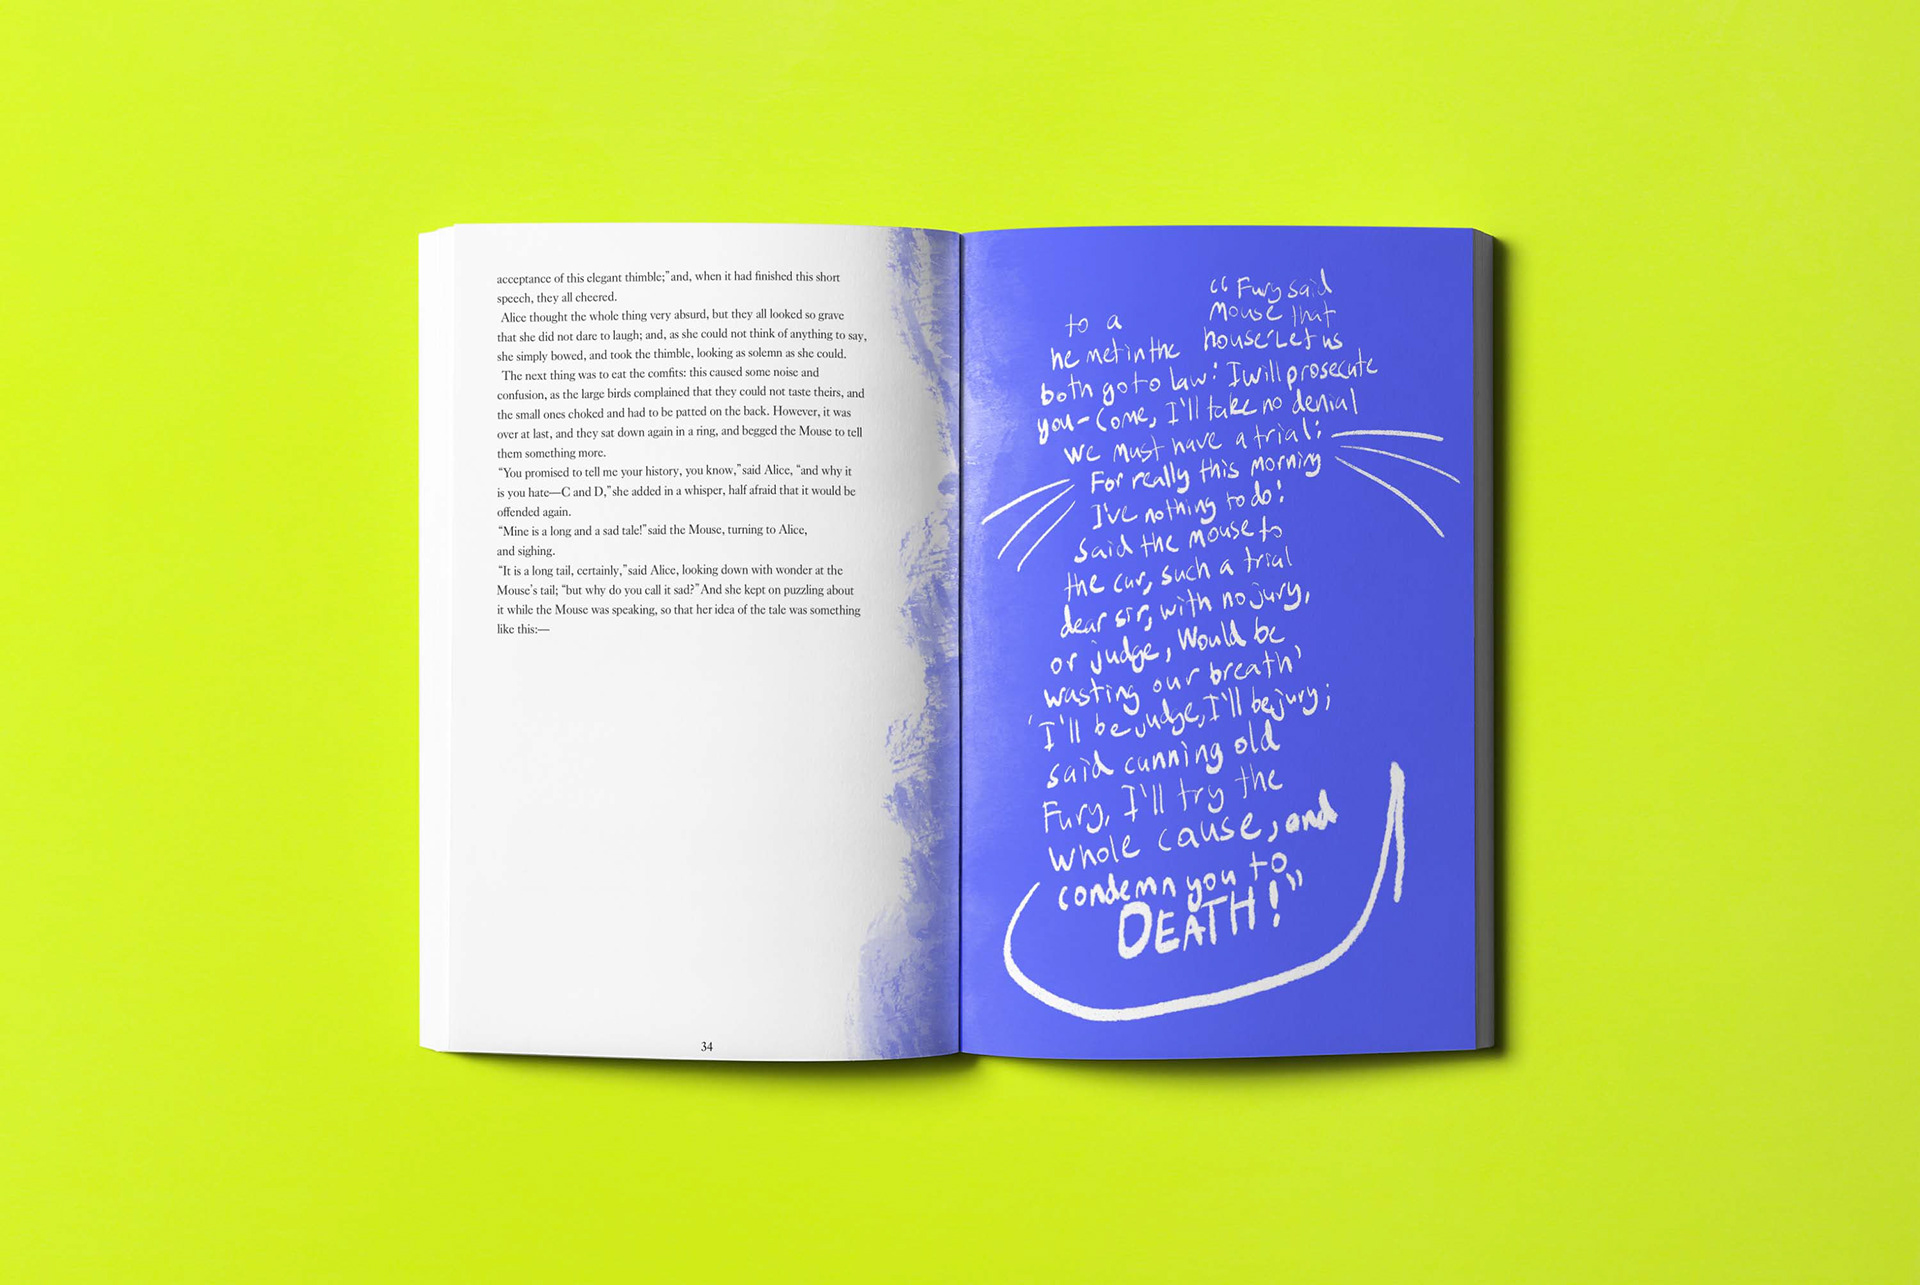 acceptance of this elegant thimble;” and, when it had finished this short
speech, they all cheered.
Alice thought the whole thing very absurd, but they all looked so grave
that she did not dare to laugh; and, as she could not think of anything to say,
she simply bowed, and took the thimble, looking as solemn as she could.
The next thing was to eat the comfits: this caused some noise and
confusion, as the large birds complained that they could not taste theirs, and
the small ones choked and had to be patted on the back. However, it was
over at last, and they sat down again in a ring, and begged the Mouse to tell
them something more.
“You promised to tell me your history, you know,” said Alice, “and why it
is you hate—C and D,” she added in a whisper, half afraid that it would be
offended again.
“Mine is a long and a sad tale!” said the Mouse, turning to Alice,
and sighing.
“It is a long tail, certainly,” said Alice, looking down with wonder at the
Mouse’s tail; “but why do you call it sad?” And she kept on puzzling about
it while the Mouse was speaking, so that her idea of the tale was something
like this:—
34
“Fury said
to a Mouse that
he met in the house‘Let us
both go to law: I will prosecute
you-Come, I'll take no denial
We must have a trial;
For really this morning
I've nothing to do:
Said the mouse to
the cur, such a trial
dear sir, with no jury,
or judge, Would be
wasting our breath’
‘I'll be judge, I'll be jury;
said cunning old
Fury, I'll try the
whole cause, and
condemn you to
DEATH!”